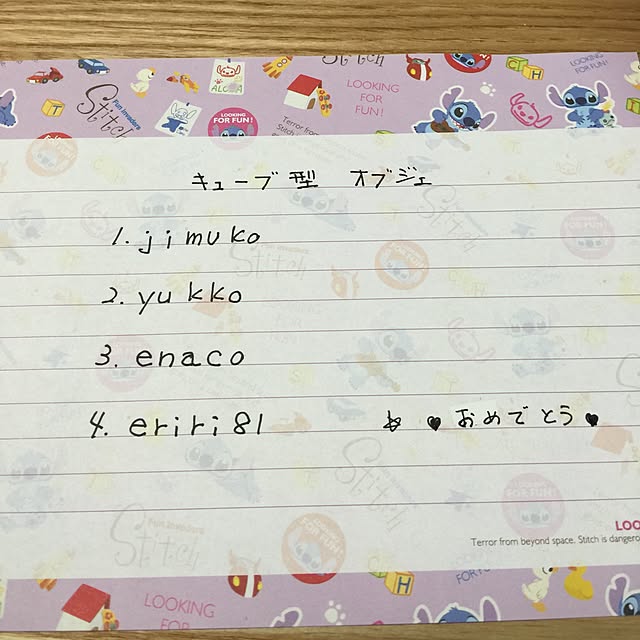 Stitch
Fun Invaders
ALOHA
LOOKING
FOR FUN!
Terror from
Stitch is
LOOKING
FOR
FUN!
LOOKING
FOR FUN!
キューブ型 オブジェ
1. jimuko
2. yukko
3. enaco
4. eriri81 ☆ ♥おめでとう♥
Stitch
Fun Invaders
Stitch
LOO
Terror from beyond space. Stitch is dangero
LOOKING
FOR